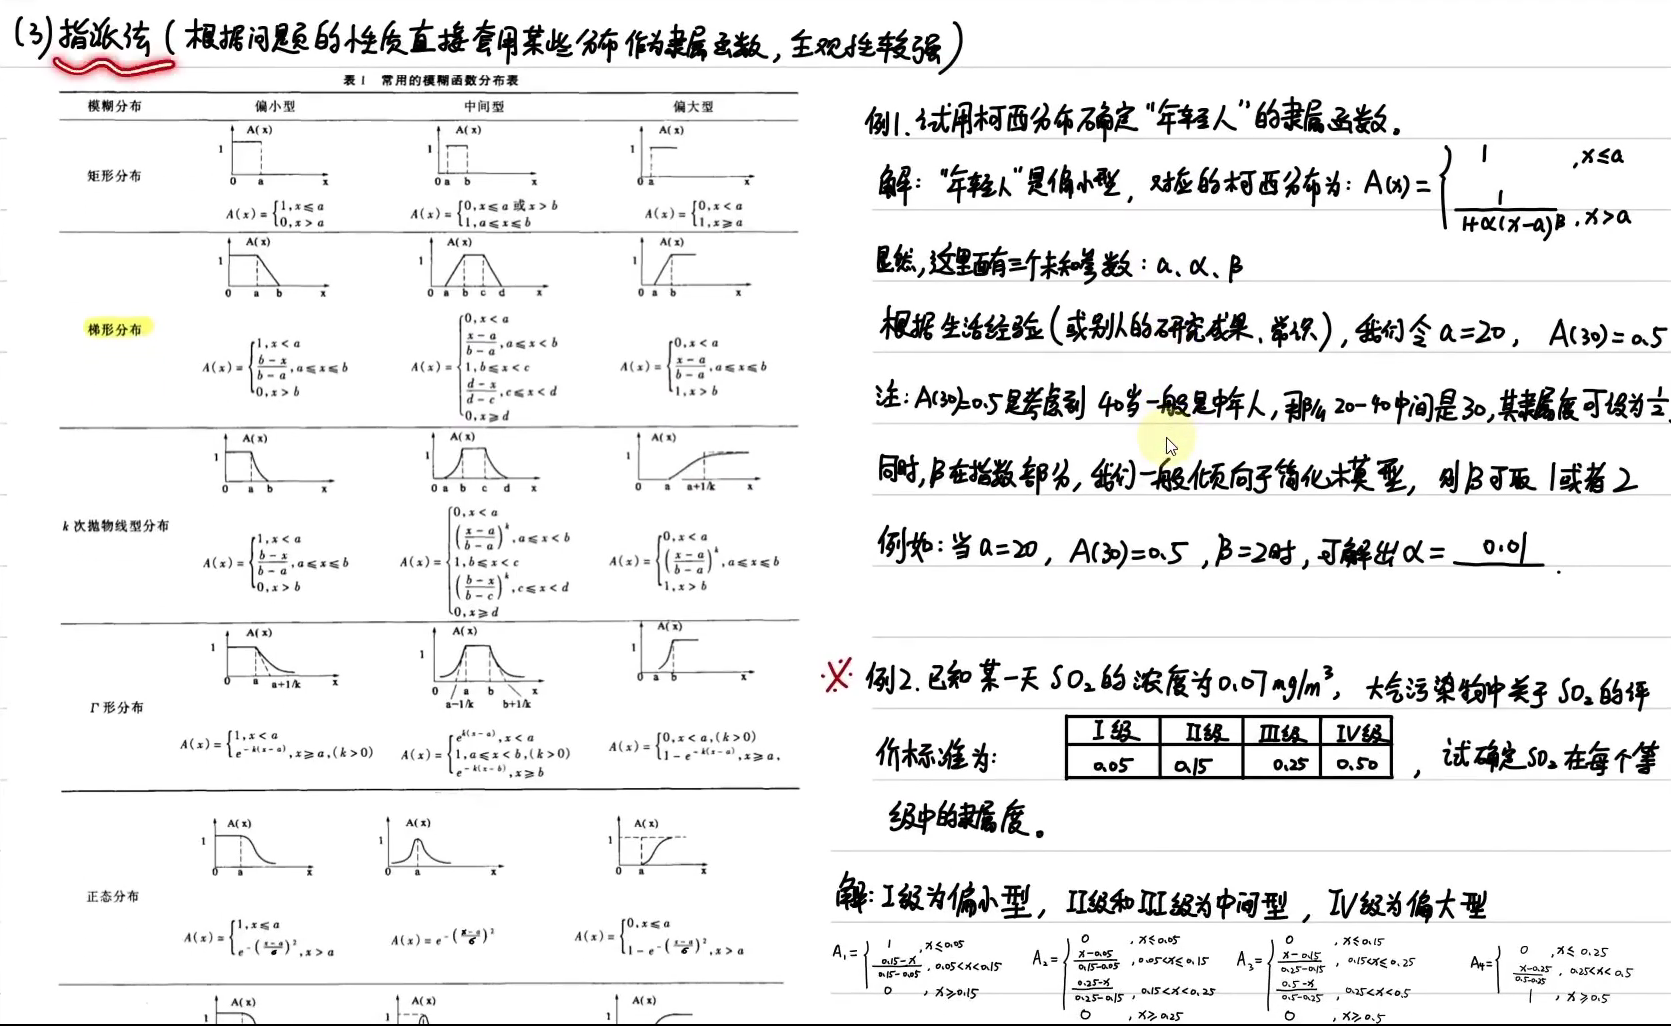 (3)指派法(根据问题的性质直接套用某些分布作为隶属函数,主观性较强)
表1 常用的模糊函数分布表
模糊分布 偏小型 中间型 偏大型
矩形分布
A(x) 1 0 a x
A(x) 1 0 a b x
A(x) 1 0 a x
A(x)={1,x≤a
0,x>a
A(x)={0,x≤a 或 x>b
1,a≤x≤b
A(x)={0,x<a
1,x≥a
梯形分布
A(x) 1 0 a b x
A(x) 1 0 a b c d x
A(x) 1 0 a b x
A(x)={1,x<a
(b-x)/(b-a),a≤x≤b
0,x>b
A(x)={0,x<a
(x-a)/(b-a),a≤x<b
1,b≤x<c
(d-x)/(d-c),c≤x<d
0,x≥d
A(x)={0,x<a
(x-a)/(b-a),a≤x≤b
1,x>b
k次抛物线型分布
A(x) 1 0 a b x
A(x) 1 0 a b c d x
A(x) 1 0 a a+1/k x
A(x)={1,x<a
(b-x)/(b-a),a≤x≤b
0,x>b
A(x)={0,x<a
((x-a)/(b-a))^k,a≤x<b
1,b≤x<c
((b-x)/(b-c))^k,c≤x<d
0,x≥d
A(x)={0,x<a
((x-a)/(b-a))^k,a≤x≤b
1,x>b
Γ形分布
A(x) 1 0 a a+1/k x
A(x) 1 0 a b x a-1/k b+1/k
A(x) 1 0 a b x
A(x)={1,x<a
e^{-k(x-a)},x≥a,(k>0)
A(x)={e^{k(x-a)},x<a
1,a≤x<b,(k>0)
e^{-k(x-b)},x≥b
A(x)={0,x<a,(k>0)
1-e^{-k(x-a)},x≥a,
正态分布
A(x) 1 0 a x
A(x) 1 0 a x
A(x) 1 0 a x
A(x)={1,x≤a
e^{-((x-a)/σ)²},x>a
A(x)=e^{-((x-a)/σ)²}
A(x)={0,x≤a
1-e^{-((x-a)/σ)²},x>a
A(x) 1
A(x) 1
A(x) 1
例1.试用柯西分布确定“年轻人”的隶属函数。
解:“年轻人”是偏小型,对应的柯西分布为:A(x)={1 ,x≤a
1/(1+α(x-a)^β) ,x>a
显然,这里面有三个未知参数:a、α、β
根据生活经验(或别人的研究成果、常识),我们令a=20, A(30)=0.5
注:A(30)=0.5是考虑到40岁一般是中年人,那么20-40中间是30,其隶属度可设为1/2
同时,β在指数部分,我们一般倾向于简化模型,则β可取1或者2
例如:当a=20, A(30)=0.5 ,β=2时,可解出α= 0.01 .
※ 例2.已知某一天SO₂的浓度为0.07mg/m³, 大气污染物中关于SO₂的评
价标准为: ,试确定SO₂在每个等
I级 II级 III级 IV级
0.05 0.15 0.25 0.50
级中的隶属度。
解:I级为偏小型, II级和III级为中间型, IV级为偏大型
A₁={1 ,x≤0.05
(0.15-x)/(0.15-0.05) ,0.05<x<0.15
0 ,x≥0.15
A₂={0 ,x≤0.05
(x-0.05)/(0.15-0.05) ,0.05<x≤0.15
(0.25-x)/(0.25-0.15) ,0.15<x<0.25
0 ,x≥0.25
A₃={0 ,x≤0.15
(x-0.15)/(0.25-0.15) ,0.15<x≤0.25
(0.5-x)/(0.5-0.25) ,0.25<x<0.5
0 ,x≥0.5
A₄={0 ,x≤0.25
(x-0.25)/(0.5-0.25) ,0.25<x<0.5
1 ,x≥0.5